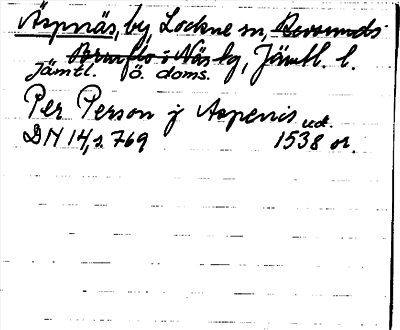 Äspnäs, by, Lockne sn, Revsunds
Brunflo o Näs tg, Jämtl. l.
Jämtl. ö. doms.
Per Person j Aspenis ud.
DN 14, s. 769 1538 or.